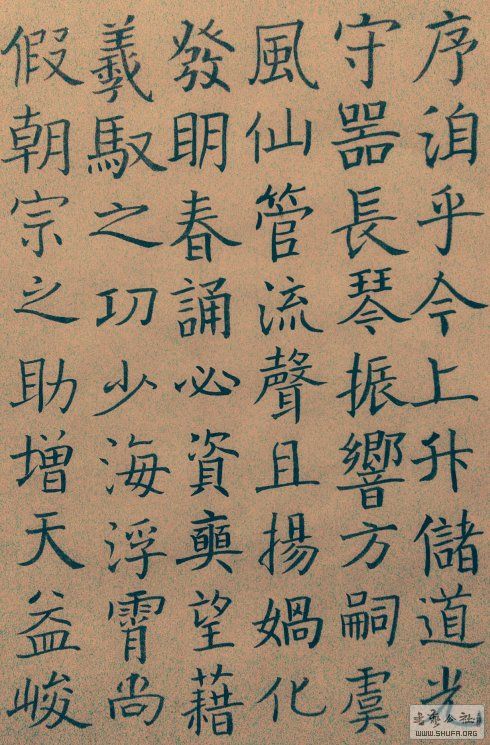 序洎乎今上升儲道光
守器長琴振響方嗣虞
風仙管流聲且揚媧化
發明春誦必資奭望藉
羲馭之功少海浮霄尚
假朝宗之助增天益峻
公社
WWW.SHUFA.ORG